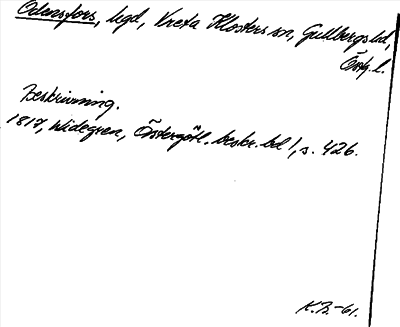 Odensfors, hgd, Vreta Klosters sn, Gullbergs hd,
Östg. l.
Beskrivning.
1817, Widegren, Östergötl. beskr. bd 1, s. 426.
K.B.-61.